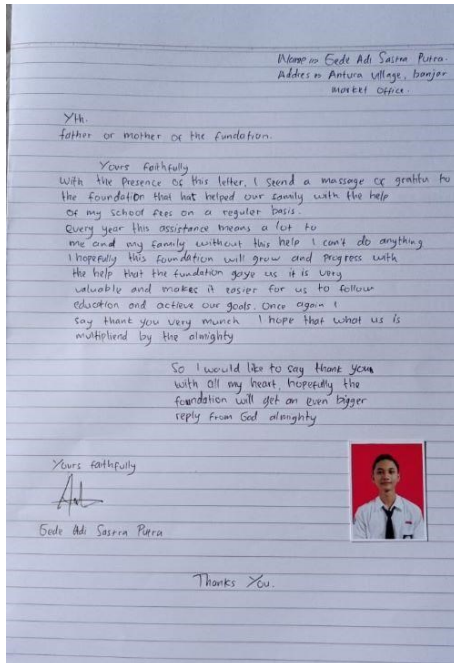 Name => Gede Adi Sastra Putra.
Addres => Antura Village, banjar
market Office.
Yth.
father or mother of the fundation.
Yours faithfully
With the Presence of this letter, I Seend a massage of gratitu to
the foundation that has helped our family with the help
of my school fees on a reguler basis.
Every year this assistance means a lot to
me and my family without this help I can't do anything
I hopefully this foundation will grow and progress with
the help that the fundation gave us it is very
valuable and makes it easier for us to follow
education and achieve our goals. Once again I
say thank you very munch I hope that what us is
multipliend by the almighty
So I would like to say thank you
with all my heart, hopefully the
foundation will get an even bigger
reply from God almighty
Yours faithfully
Gede Adi Sastra Putra
Thanks You.